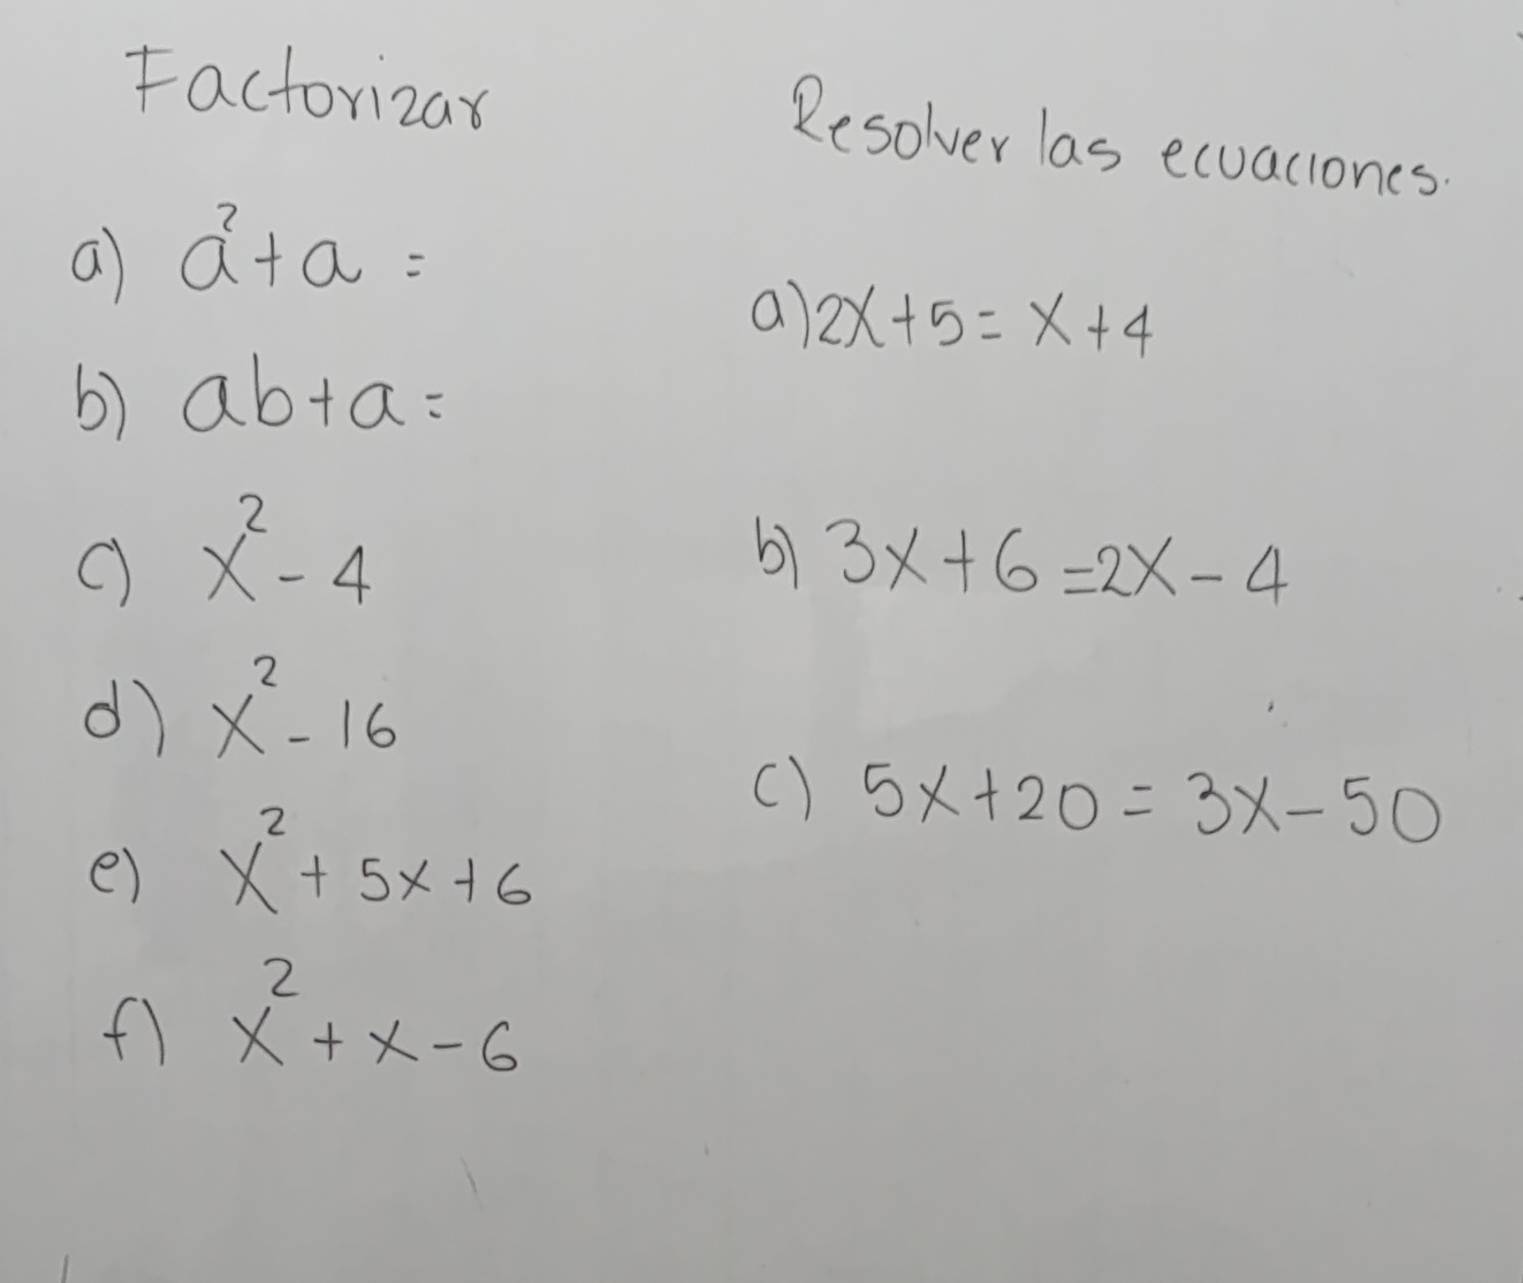 Factorizar
a) a²+a =
b) ab+a =
c) x² - 4
d) x² - 16
e) x² + 5x + 6
f) x² + x - 6
Resolver las ecuaciones.
a) 2x+5 = x+4
b) 3x+6 = 2x - 4
c) 5x+20 = 3x - 50